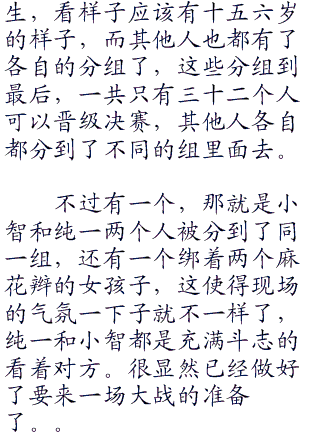 生，看样子应该有十五六岁
的样子，而其他人也都有了
各自的分组了，这些分组到
最后，一共只有三十二个人
可以晋级决赛，其他人各自
都分到了不同的组里面去。
不过有一个，那就是小
智和纯一两个人被分到了同
一组，还有一个绑着两个麻
花辫的女孩子，这使得现场
的气氛一下子就不一样了，
纯一和小智都是充满斗志的
看着对方。很显然已经做好
了要来一场大战的准备
了。。